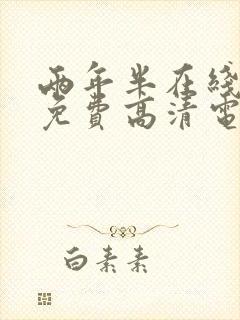 两年半在线
免费高清电
白素素